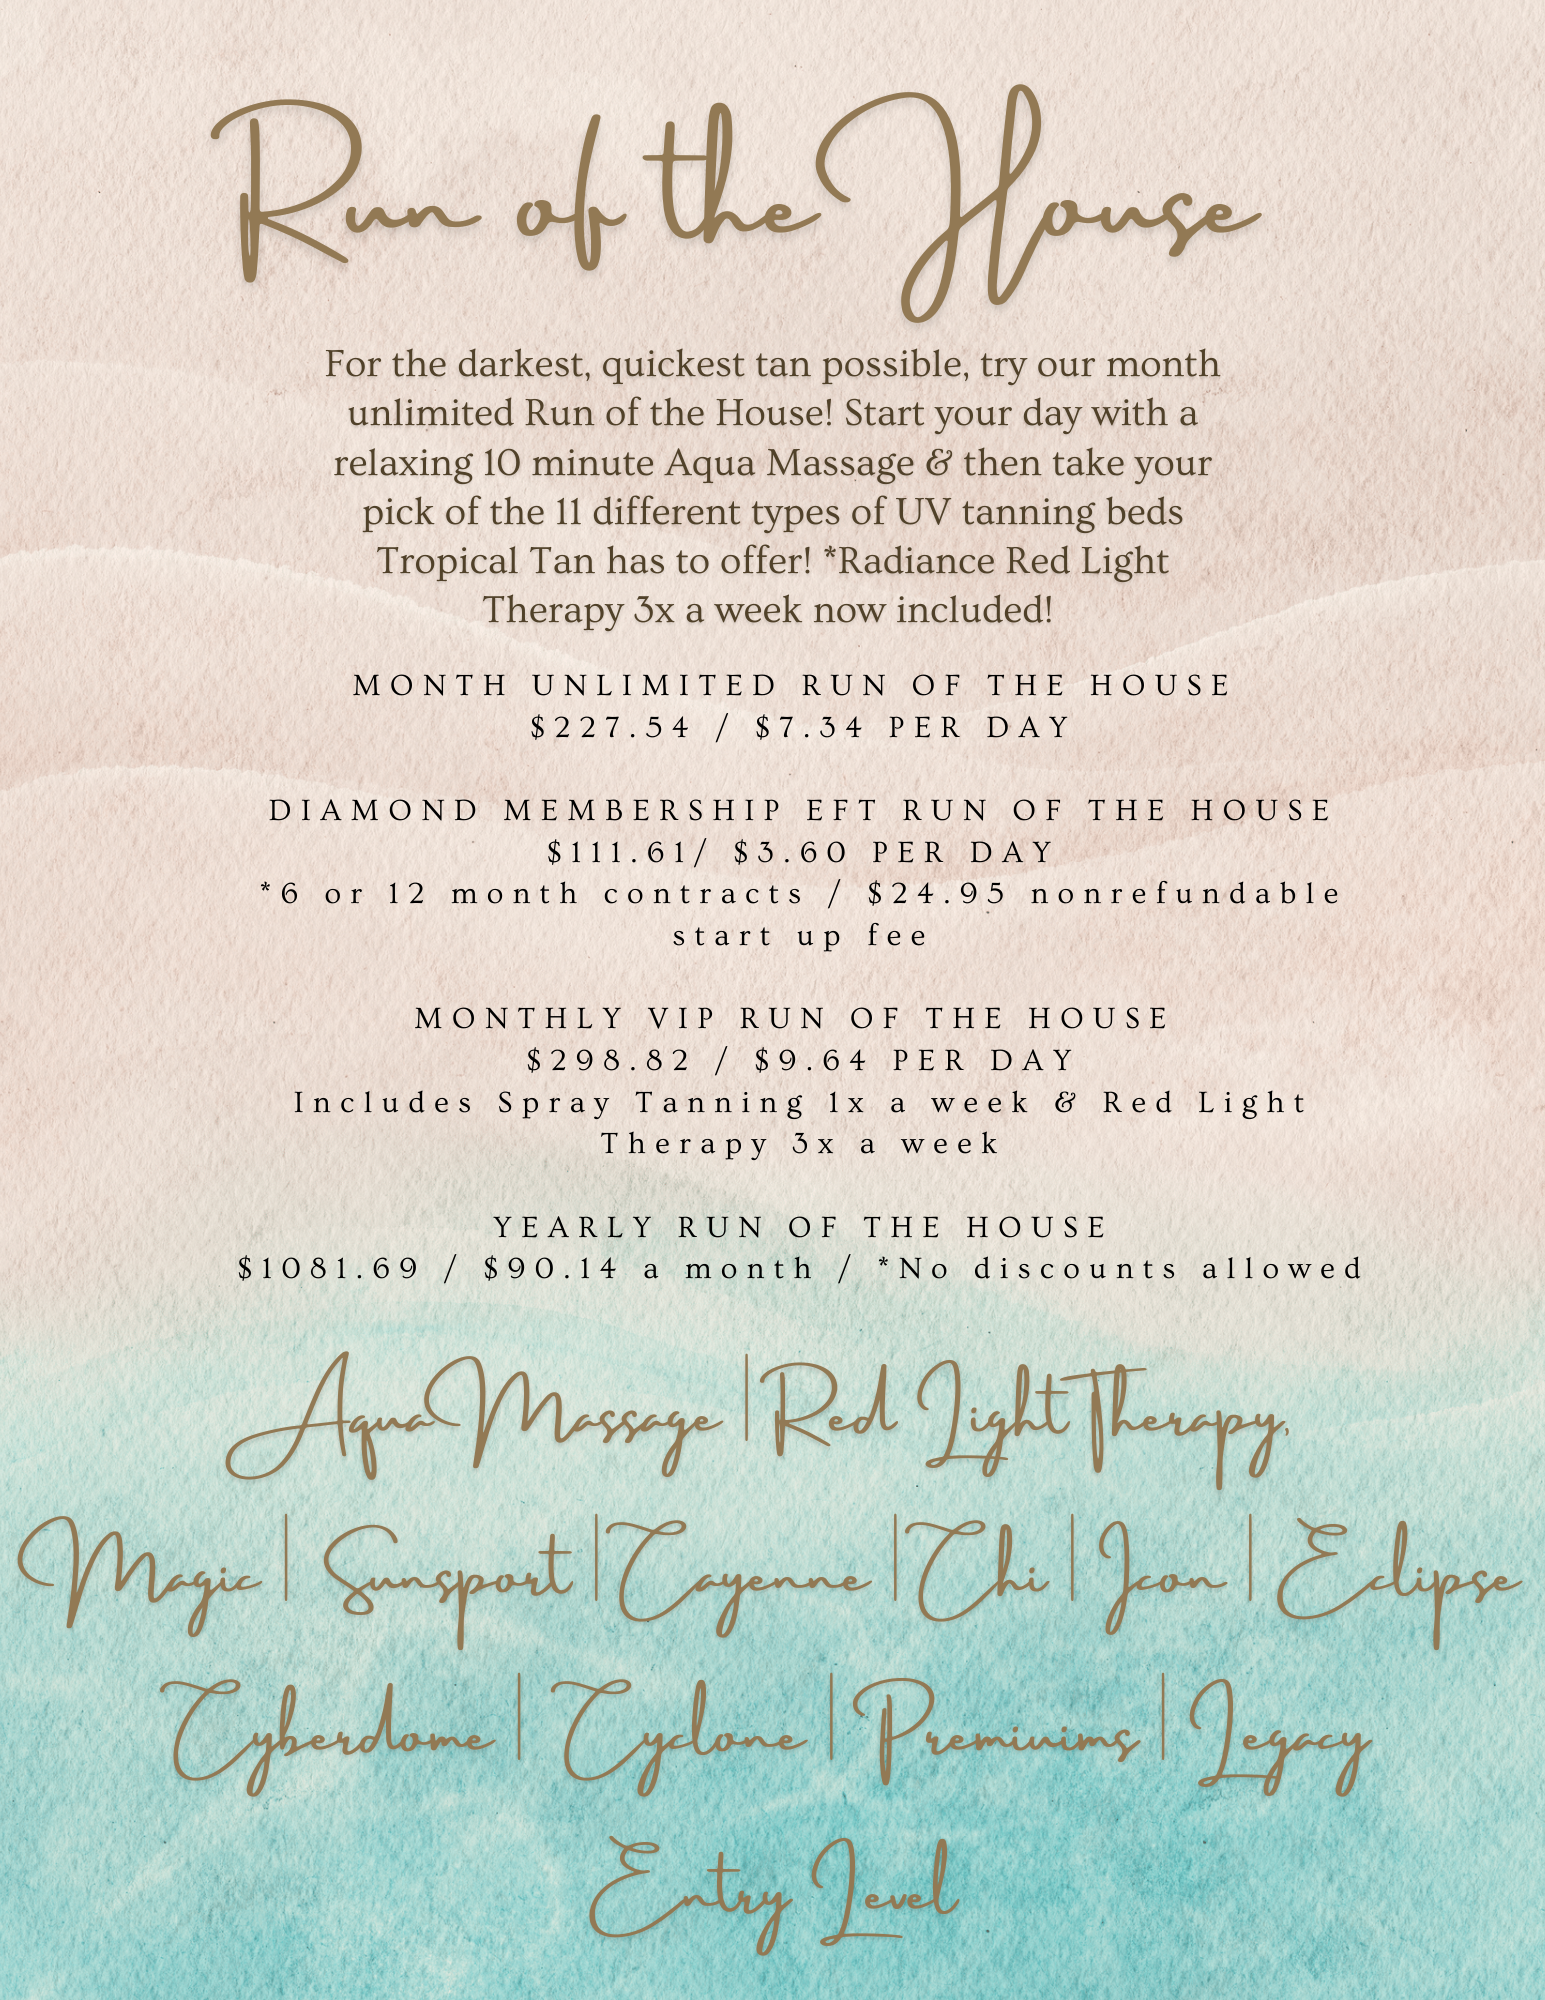 Run of the House
For the darkest, quickest tan possible, try our month
unlimited Run of the House! Start your day with a
relaxing 10 minute Aqua Massage & then take your
pick of the 11 different types of UV tanning beds
Tropical Tan has to offer! *Radiance Red Light
Therapy 3x a week now included!
MONTH UNLIMITED RUN OF THE HOUSE
$227.54 / $7.34 PER DAY
DIAMOND MEMBERSHIP EFT RUN OF THE HOUSE
$111.61/ $3.60 PER DAY
*6 or 12 month contracts / $24.95 nonrefundable
start up fee
MONTHLY VIP RUN OF THE HOUSE
$298.82 / $9.64 PER DAY
Includes Spray Tanning 1x a week & Red Light
Therapy 3x a week
YEARLY RUN OF THE HOUSE
$1081.69 / $90.14 a month / *No discounts allowed
Aqua Massage | Red Light Therapy,
Magic | Sunsport | Cayenne | Chi | Icon | Eclipse
Cyberdome | Cyclone | Premiuims | Legacy
Entry Level